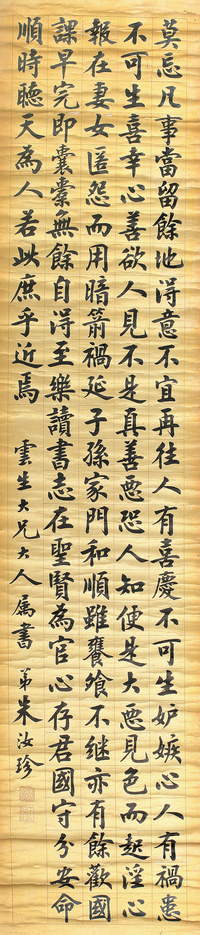 莫忘凡事當留餘地得意不宜再往人有喜慶不可生妒嫉心人有禍患
不可生喜幸心善欲人見不是真善惡恐人知便是大惡見色而起淫心
報在妻女匿怨而用暗箭禍延子孫家門和順雖饔飧不繼亦有餘歡國
課早完即囊橐無餘自得至樂讀書志在聖賢為官心存君國守分安命
順時聽天為人若此庶乎近焉 雲生大兄大人屬書 弟朱汝珍